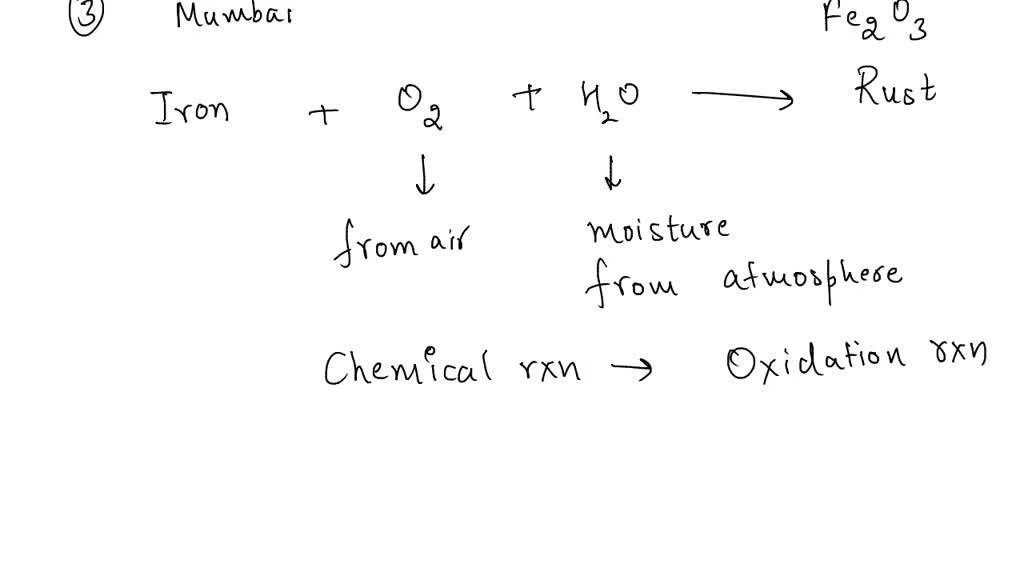 ③ Mumbai Fe₂O₃
Iron + O₂ + H₂O → Rust
↓ ↓
from air moisture
from atmosphere
Chemical rxn → Oxidation rxn